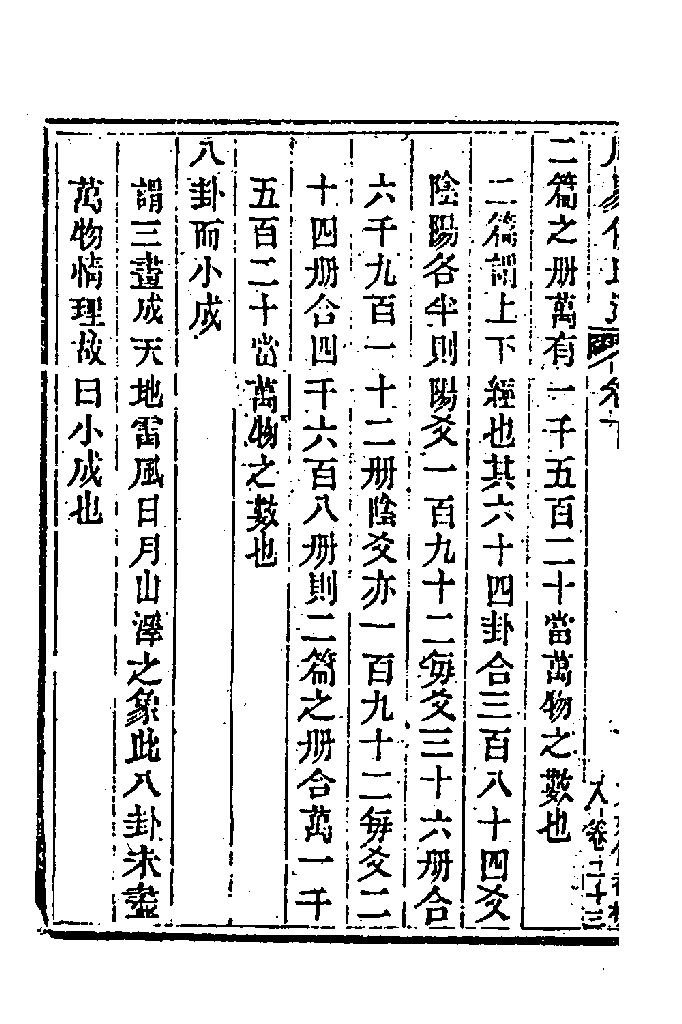 二篇之册萬有一千五百二十當萬物之數也
二篇謂上下經也其六十四卦合三百八十四爻
陰陽各半則陽爻一百九十二每爻三十六册合
六千九百一十二册陰爻亦一百九十二每爻二
十四册合四千六百八册則二篇之册合萬一千
五百二十當萬物之數也
八卦而小成
謂三畫成天地雷風日月山澤之象此八卦未盡
萬物情理故曰小成也
卷二十三